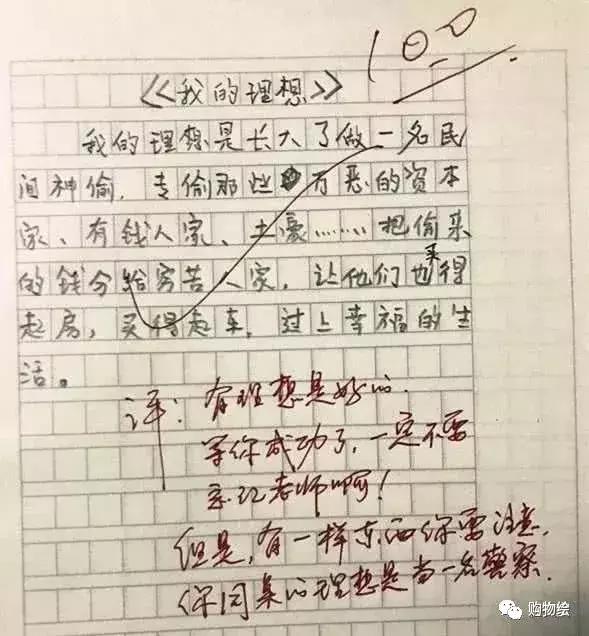 100
《我的理想》
我的理想是长大了做一名民
间神偷，专偷那些万恶的资本
家、有钱人家、土豪……把偷来
的钱分给穷苦人家，让他们也买得
起房，买得起车，过上幸福的生
活。
评：有理想是好的．
等你成功了，一定不要
忘记老师啊！
但是，有一样东西你要注意，
你同桌的理想是当一名警察．
购物绘